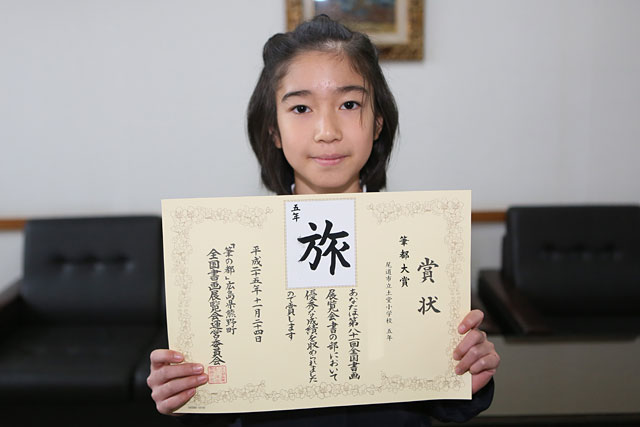 賞状
筆都大賞
尾道市立土堂小学校 五年
五年
旅
あなたは第八十一回全国書画
展覧会書の部において
優秀な成績を収められました
ので賞します
平成二十五年十一月二十四日
「筆の都」広島県熊野町
全国書画展覧会運営委員会